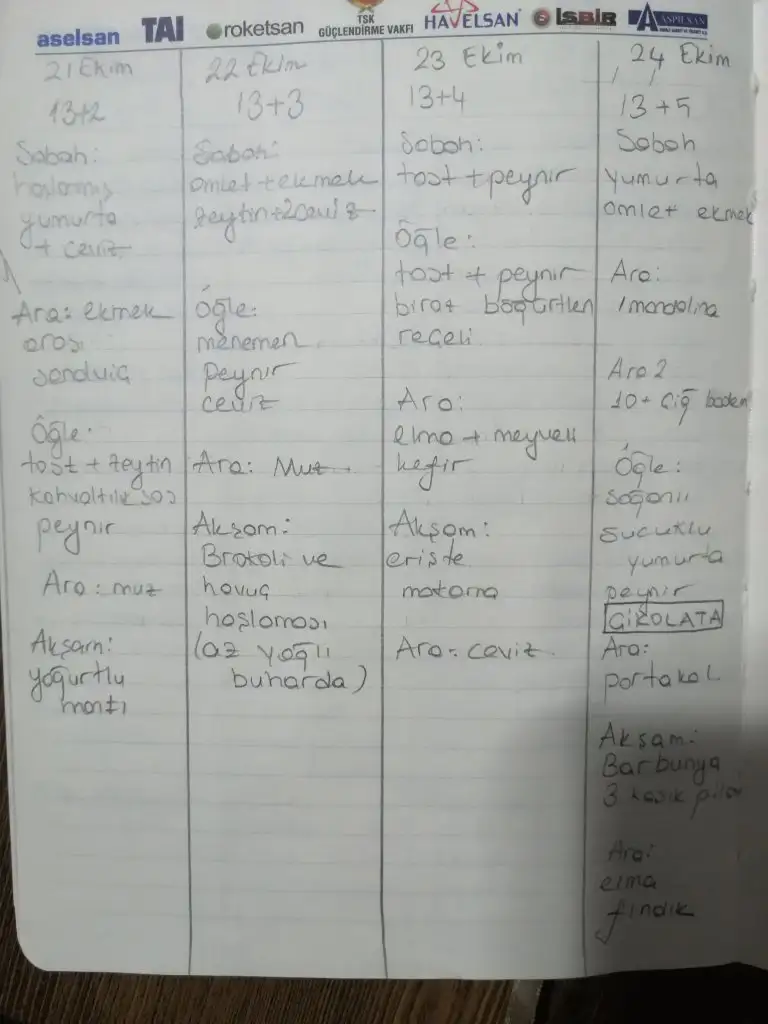 aselsan TAI roketsan TSK GÜÇLENDİRME VAKFI HAVELSAN İŞBİR ASPİLSAN
21 Ekim
13+2
Sabah:
haşlanmış
yumurta
+ ceviz
Ara: ekmek
arası
sandviç
Öğle:
tost + zeytin
kahvaltılık sos
peynir
Ara: muz
Akşam:
yoğurtlu
mantı
22 Ekim
13+3
Sabah:
omlet + ekmek
zeytin+2 ceviz
Öğle:
menemen
peynir
ceviz
Ara: Muz
Akşam:
Brokoli ve
havuç
haşlaması
(az yağlı
buharda)
23 Ekim
13+4
Sabah:
tost + peynir
Öğle:
tost + peynir
biraz böğürtlen
reçeli
Ara:
elma + meyveli
kefir
Akşam:
erişte
makarna
Ara: ceviz
24 Ekim
13+5
Sabah
yumurta
omlet ekmek
Ara:
1 mandalina
Ara 2
10+ çiğ badem
Öğle:
soğanlı
sucuklu
yumurta
peynir
ÇİKOLATA
Ara:
portakal
Akşam:
Barbunya
3 kaşık pilav
Ara:
elma
fındık